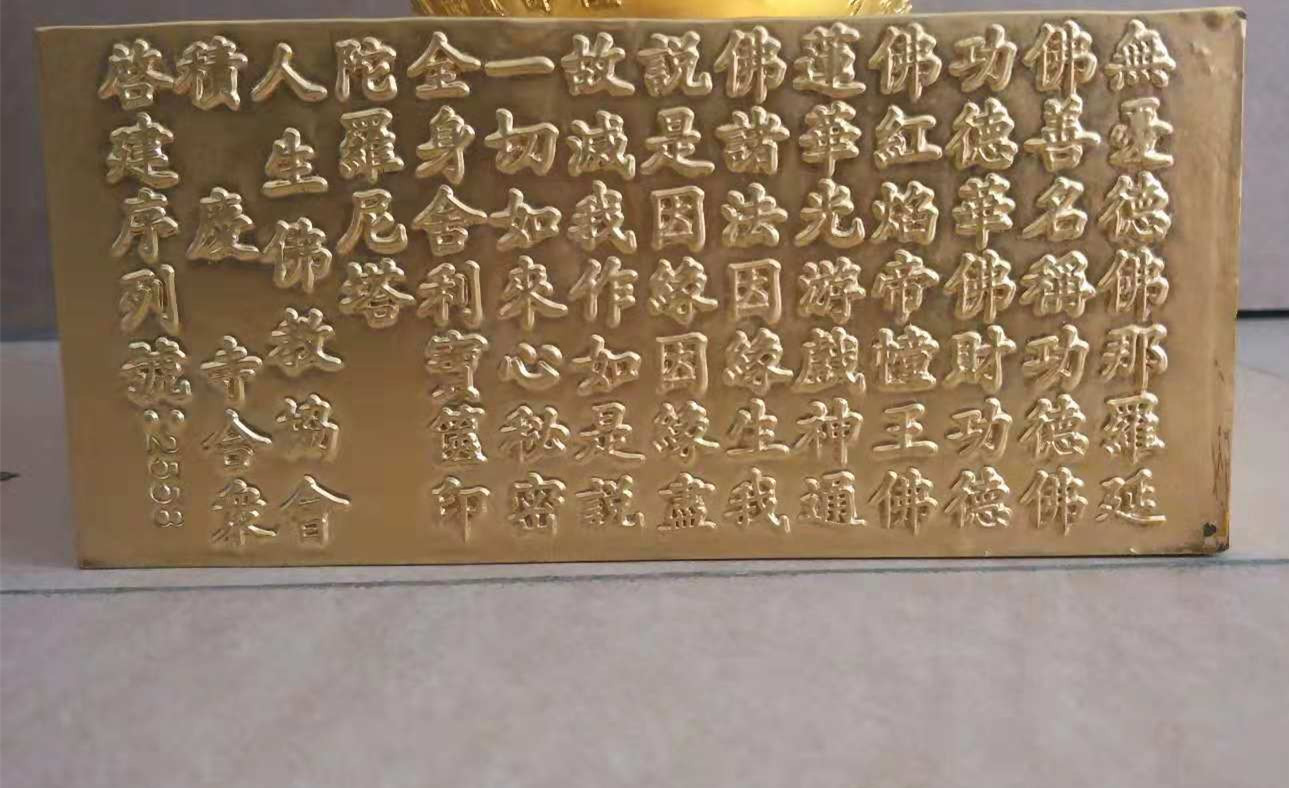 無垩德佛那羅延
佛善名稱功德佛
功德華佛財功德
佛紅焰帝幢王佛
蓮華光游戲神通
佛諸法因緣生我
説是因緣因緣盡
故滅我作如是説
一切如來心秘密
全身舍利寶篋印
陀羅尼塔
人生佛教協會
積慶寺合衆
啓建序列號:2558